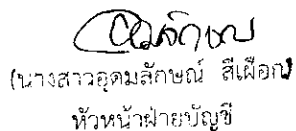 (นางสาวอุดมลักษณ์ สีเผือก)
หัวหน้าฝ่ายบัญชี